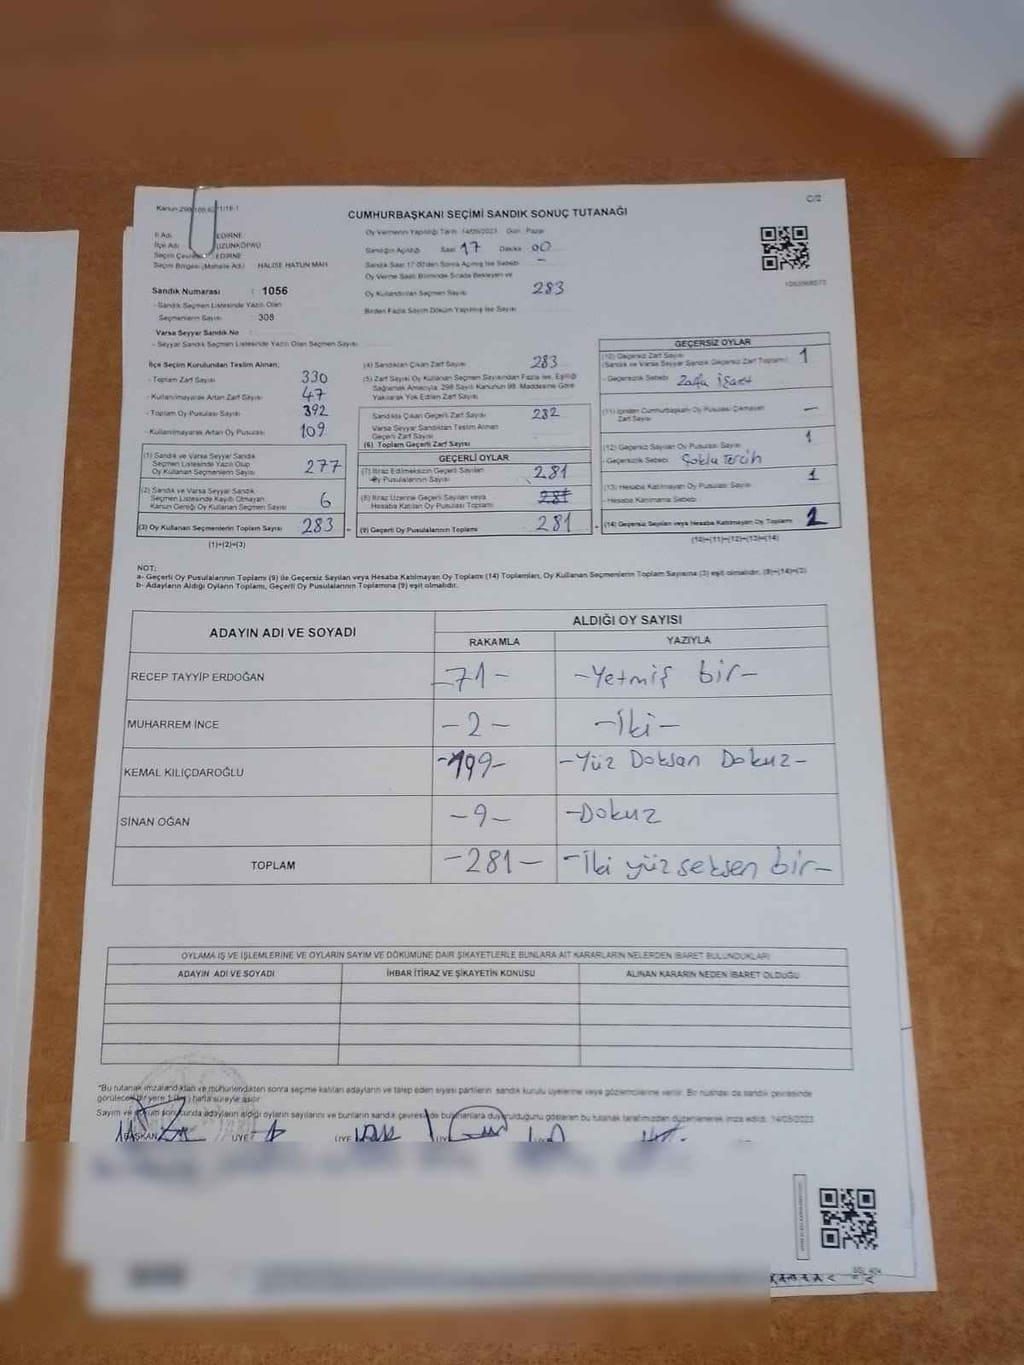 Kanun:298
C/2
CUMHURBAŞKANI SEÇİMİ SANDIK SONUÇ TUTANAĞI
İl Adı : EDİRNE
İlçe Adı : UZUNKÖPRÜ
Seçim Çevresi : EDİRNE
Seçim Bölgesi (Mahalle Ad.) HALİSE HATUN MAH
Sandık Numarası : 1056
- Sandık Seçmen Listesinde Yazılı Olan
Seçmenlerin Sayısı : 308
Varsa Seyyar Sandık No
- Seyyar Sandık Seçmen Listesinde Yazılı Olan Seçmen Sayısı
Oy Vermenin Yapıldığı Tarih : 14/05/2023 Gün : Pazar
Sandığın Açıldığı Saat 17 Dakika 00
Sandık Saat 17:00'den Sonra Açılmış İse Sebebi -
Oy Verme Saati Bitiminde Sırada Bekleyen ve
Oy Kullandırılan Seçmen Sayısı 283
Birden Fazla Sayım Döküm Yapılmış İse Sayısı
İlçe Seçim Kurulundan Teslim Alınan;
- Toplam Zarf Sayısı 330
- Kullanılmayarak Artan Zarf Sayısı 47
- Toplam Oy Pusulası Sayısı 392
- Kullanılmayarak Artan Oy Pusulası 109
(1) Sandık ve Varsa Seyyar Sandık
Seçmen Listesinde Yazılı Olup
Oy Kullanan Seçmenlerin Sayısı 277
(2) Sandık ve Varsa Seyyar Sandık
Seçmen Listesinde Kayıtlı Olmayan
Kanun Gereği Oy Kullanan Seçmen Sayısı 6
(3) Oy Kullanan Seçmenlerin Toplam Sayısı 283
(1)+(2)=(3)
(4) Sandıktan Çıkan Zarf Sayısı 283
(5) Zarf Sayısı Oy Kullanan Seçmen Sayısından Fazla İse, Eşitliği
Sağlamak Amacıyla, 298 Sayılı Kanunun 98. Maddesine Göre
Yakılarak Yok Edilen Zarf Sayısı
Sandıkta Çıkan Geçerli Zarf Sayısı 282
Varsa Seyyar Sandıktan Teslim Alınan
Geçerli Zarf Sayısı
(6) Toplam Geçerli Zarf Sayısı
GEÇERLİ OYLAR
(7) İtiraz Edilmeksizin Geçerli Sayılan
Oy Pusulalarının Sayısı 281
(8) İtiraz Üzerine Geçerli Sayılan veya
Hesaba Katılan Oy Pusulası Toplamı 281
(9) Geçerli Oy Pusulalarının Toplamı 281
GEÇERSİZ OYLAR
(10) Geçersiz Zarf Sayısı 1
(Sandık ve Varsa Seyyar Sandık Geçersiz Zarf Toplamı)
- Geçersizlik Sebebi Zarfa işaret
(11) İçinden Cumhurbaşkanı Oy Pusulası Çıkmayan
Zarf Sayısı —
(12) Geçersiz Sayılan Oy Pusulası Sayısı 1
- Geçersizlik Sebebi Çoklu Tercih
(13) Hesaba Katılmayan Oy Pusulası Sayısı 1
- Hesaba Katılmama Sebebi
(14) Geçersiz Sayılan veya Hesaba Katılmayan Oy Toplamı 2
(10)+(11)+(12)+(13)=(14)
NOT:
a- Geçerli Oy Pusulalarının Toplamı (9) ile Geçersiz Sayılan veya Hesaba Katılmayan Oy Toplamı (14) Toplamları, Oy Kullanan Seçmenlerin Toplam Sayısına (3) eşit olmalıdır. (9)+(14)=(3)
b- Adayların Aldığı Oyların Toplamı, Geçerli Oy Pusulalarının Toplamına (9) eşit olmalıdır.
ADAYIN ADI VE SOYADI
ALDIĞI OY SAYISI
RAKAMLA YAZIYLA
RECEP TAYYİP ERDOĞAN -71- -Yetmiş bir-
MUHARREM İNCE -2- -İki-
KEMAL KILIÇDAROĞLU -199- -Yüz Doksan Dokuz-
SİNAN OĞAN -9- -Dokuz
TOPLAM -281- -İki yüz seksen bir-
OYLAMA İŞ VE İŞLEMLERİNE VE OYLARIN SAYIM VE DÖKÜMÜNE DAİR ŞİKAYETLERLE BUNLARA AİT KARARLARIN NELERDEN İBARET BULUNDUKLARI
ADAYIN ADI VE SOYADI İHBAR İTİRAZ VE ŞİKAYETİN KONUSU ALINAN KARARIN NEDEN İBARET OLDUĞU
*Bu tutanak imzalandıktan ve mühürlendikten sonra seçime katılan adayların ve talep eden siyasi partilerin sandık kurulu üyelerine veya gözlemcilerine verilir. Bir nüshası da sandık çevresinde
görülecek bir yere 1 (bir) hafta süreyle asılır.
Sayım ve döküm sonucunda adayların aldığı oyların sayılarını ve bunların sandık çevresinde bulunanlara duyurulduğunu gösteren bu tutanak tarafımızdan düzenlenerek imza edildi. 14/05/2023
BAŞKAN ÜYE ÜYE